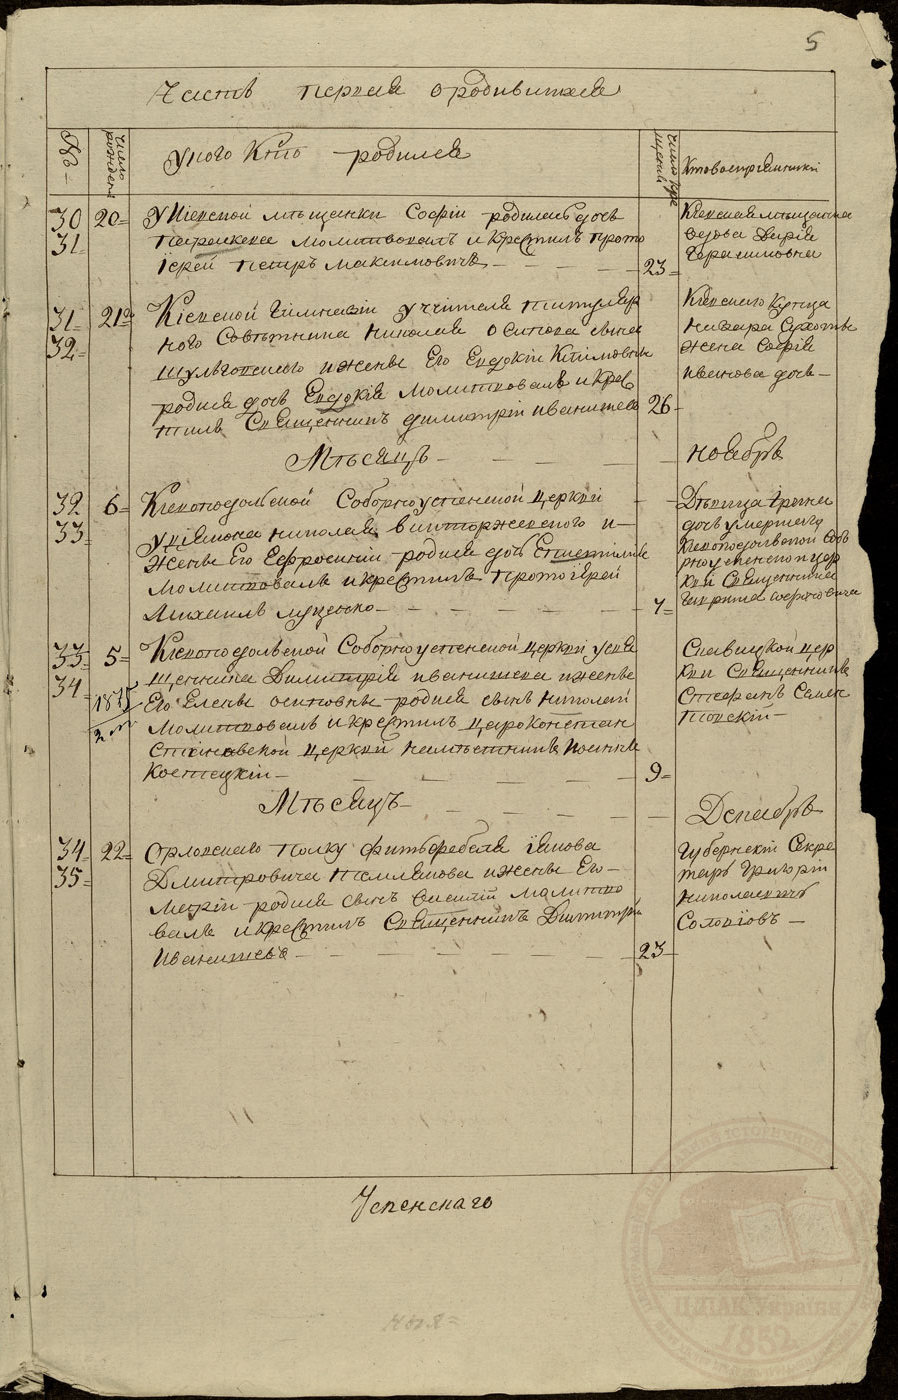 5
Часть первая о родившихся
№
число рождения
У кого кто родился
число крещения
Кто восприемники
30 20
31
У Кіевской мѣщанки Софіи родилась дочь
Параскева молитвовалъ и крестилъ прото
іерей Петръ Максимовичъ
23
Кіевская мѣщанка
вдова Дарія
Герасимовна
31 21
32
Кіевской Гимназіи учителя титуляр
ного Совѣтника Николая Осипова сына
и жены Его Евдокіи Климовны
родися дочь Евдокія молитвовалъ и крес
тилъ Священникъ Димитрій Иванишевъ
26
Кіевского Купца
жена Софія
Иванова дочь
Мѣсяцъ
Ноябрь
32 6
33
Кіевоподольской Соборноуспенской церкви
у діякона Николая и
жены Его Ефросиніи родися дочь
молитвовалъ и крестилъ протоіерей
Михаилъ
7
Дѣвица Ирина
дочь умершаго
Кіевоподольской Собо
рноуспенской цер
кви Священника
33 5
34
1815
Кіевоподольской Соборноуспенской церкви у свя
щенника Димитрія Иванишева и жены
Его Елены Осиповны родися сынъ Николай
молитвовалъ и крестилъ Цароконстан
стиновской церкви намѣстникъ Іоаннъ
9
цер
кви Священникъ
Стефанъ Семен
Мѣсяцъ
Декабрь
34 22
35
Орловского полку фитьфебеля Іякова
Дмитровича и жены Его
Маріи родися сынъ Василій молитво
валъ и крестилъ Священникъ Димитрій
Иванишевъ
23
Губернскій Секре
тарь Григорій
Николаевичъ
Успенскаго
ЦДІАК України
1852